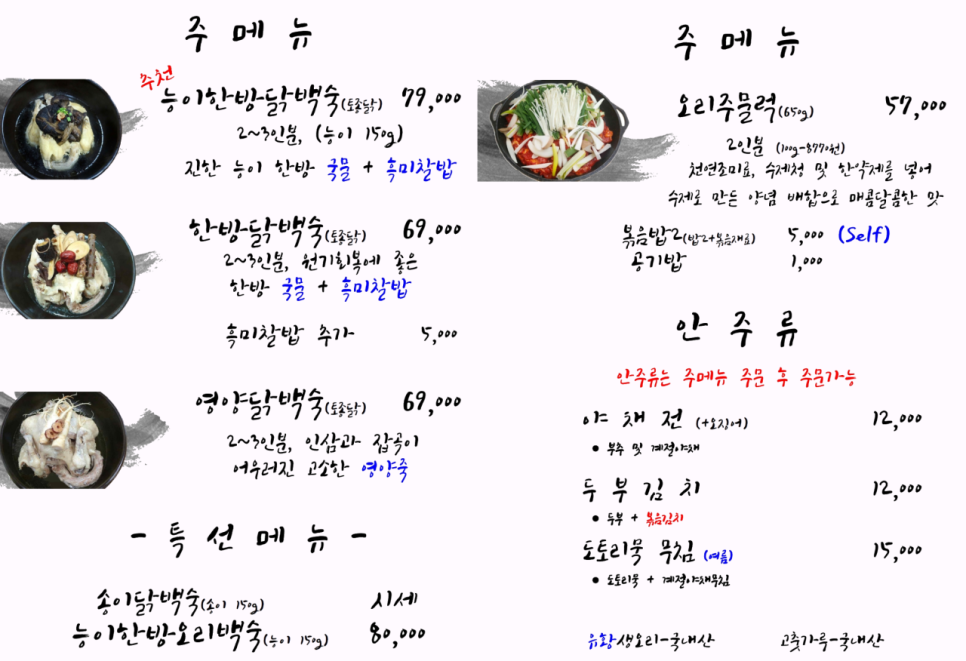 주 메 뉴
추천
능이한방닭백숙(토종닭) 79,000
2~3인분, (능이 150g)
진한 능이 한방 국물 + 흑미찰밥
한방닭백숙(토종닭) 69,000
2~3인분, 원기회복에 좋은
한방 국물 + 흑미찰밥
흑미찰밥 추가 5,000
영양닭백숙(토종닭) 69,000
2~3인분, 인삼과 잡곡이
어우러진 고소한 영양죽
- 특 선 메 뉴 -
송이닭백숙(송이 150g) 시세
능이한방오리백숙(능이 150g) 80,000
주 메 뉴
오리주물럭(650g) 57,000
2인분 (100g-8770원)
천연조미료, 수제청 및 한약제를 넣어
수제로 만든 양념 배합으로 매콤달콤한 맛
볶음밥2(밥2+볶음재료) 5,000 (Self)
공기밥 1,000
안 주 류
안주류는 주메뉴 주문 후 주문가능
야 채 전 (+오징어) 12,000
• 부추 및 계절야채
두 부 김 치 12,000
• 두부 + 볶음김치
도토리묵 무침 (여름) 15,000
• 도토리묵 + 계절야채무침
유황생오리-국내산 고춧가루-국내산